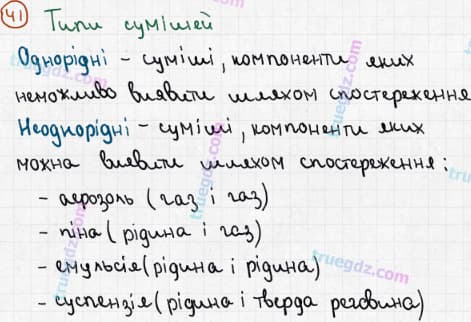 41 Типи сумішей
Однорідні - суміші, компоненти яких
неможливо виявити шляхом спостереження
Неоднорідні - суміші, компоненти яких
можна виявити шляхом спостереження:
- аерозоль (газ і газ)
- піна (рідина і газ)
- емульсія (рідина і рідина)
- суспензія (рідина і тверда речовина)
truegdz.com
truegdz.com
truegdz.com
truegdz.com